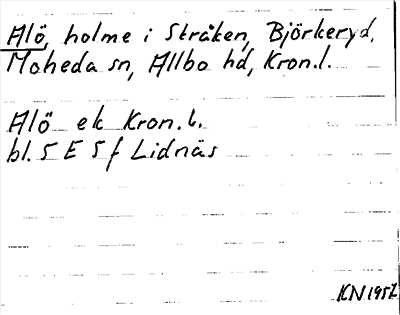 Alö, holme i Stråken, Björkeryd,
Moheda sn, Allbo hd, Kron.l.
Alö ek Kron.l.
bl. 5 E 5 f Lidnäs
KN 1952